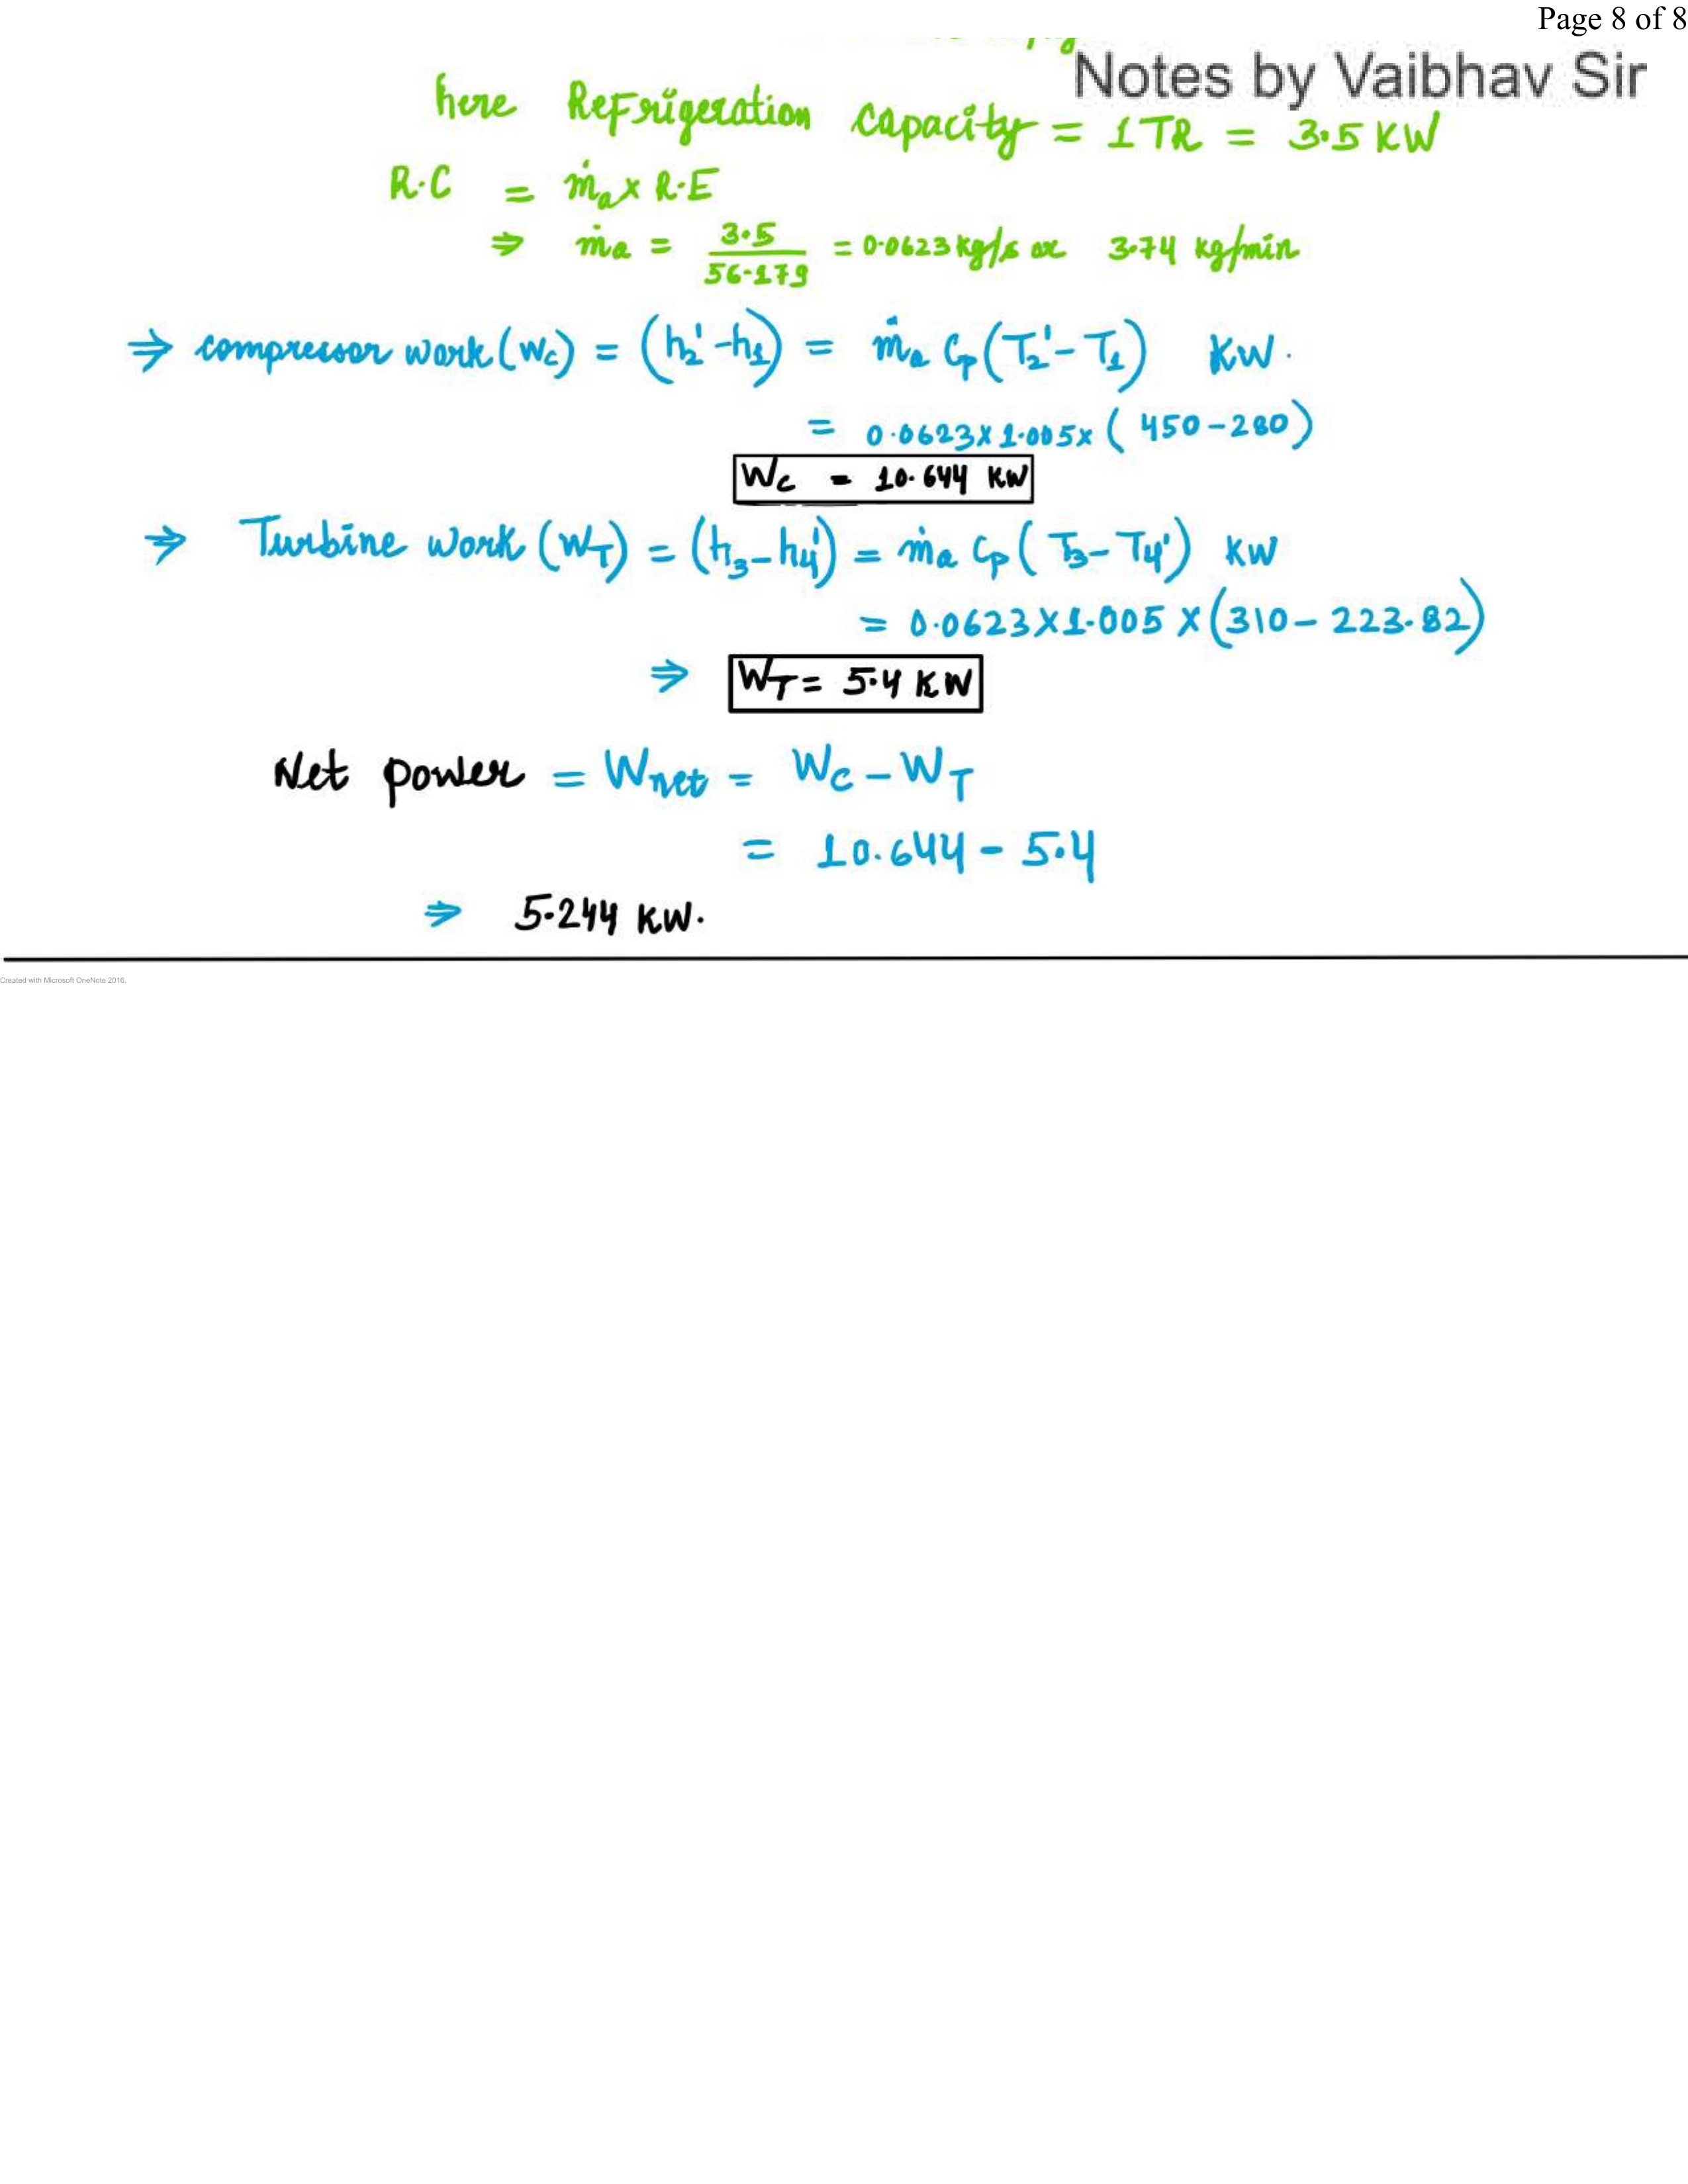 Page 8 of 8
Notes by Vaibhav Sir
here Refrigeration capacity = 1 TR = 3.5 KW
R.C = ṁa x R.E
⇒ ṁa = 3.5/56.179 = 0.0623 kg/s or 3.74 kg/min
⇒ compressor work (Wc) = (h2' - h1) = ṁa Cp (T2' - T1) KW.
= 0.0623 x 1.005 x (450 - 280)
Wc = 10.644 KW
⇒ Turbine work (WT) = (h3 - h4') = ṁa Cp (T3 - T4') KW
= 0.0623 x 1.005 x (310 - 223.82)
⇒ WT = 5.4 KW
Net power = Wnet = Wc - WT
= 10.644 - 5.4
⇒ 5.244 KW.
Created with Microsoft OneNote 2016.